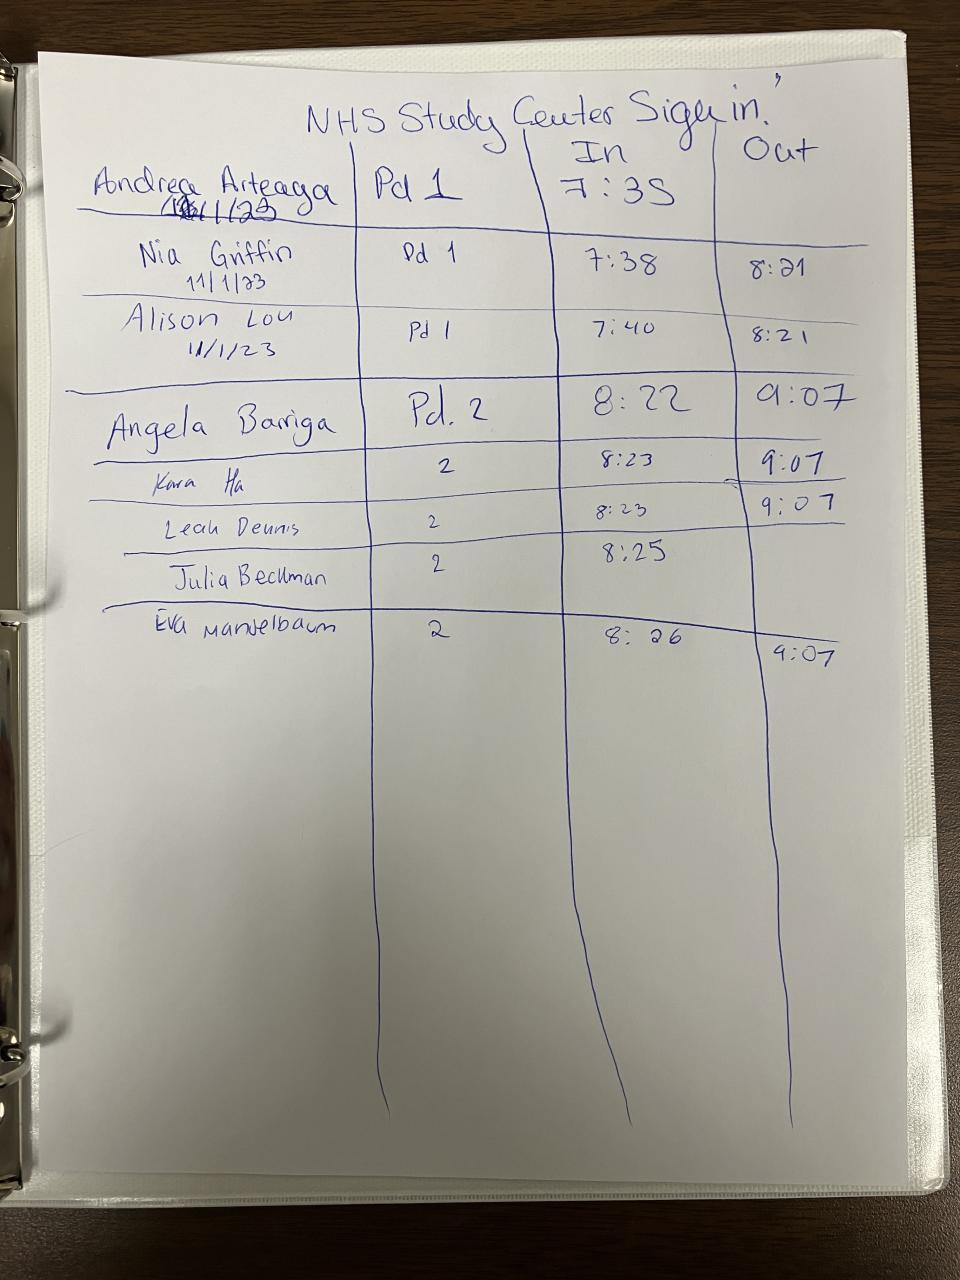 NHS Study Center Sign in
In Out
Andrea Arteaga Pd 1 7:35
11/1/23
Nia Griffin Pd 1 7:38 8:21
11/1/23
Alison Lou Pd 1 7:40 8:21
11/1/23
Angela Barriga Pd. 2 8:22 9:07
Kara Ha 2 8:23 9:07
Leah Dennis 2 8:23 9:07
Julia Beckman 2 8:25
Eva Mandelbaum 2 8:26 9:07